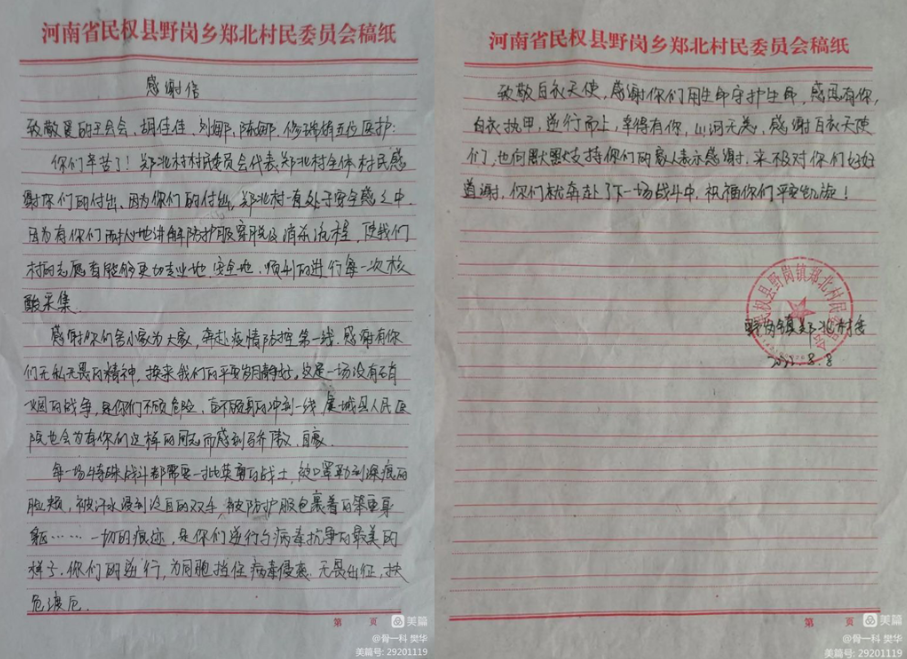 河南省民权县野岗乡郑北村民委员会稿纸
感谢信
致敬爱的王会会、胡佳佳、刘娜、陈娜、修瑞楠五位医护:
你们辛苦了！郑北村村民委员会代表郑北村全体村民感
谢你们的付出、因为你们的付出,郑北村一直处于安全感之中.
因为有你们耐心地讲解防护服穿脱及消杀流程，使我们
村的志愿者能够更加专业地、安全地、顺利的进行每一次核
酸采集.
感谢你们舍小家为大家，奔赴疫情防控第一线.感谢有你
们无私无畏的精神，换来我们的平安岁月静好,这是一场没有硝
烟的战争,是你们不顾危险、奋不顾身的冲到一线 虞城县人民医
院也会为有你们这样的同志而感到骄傲、自豪.
每一场特殊战斗都需要一批英勇的战士，被口罩勒到深痕的
脸颊，被汗水浸到泛白的双手，被防护服包裹着的笨重身
躯…… 一切的痕迹，是你们逆行与病毒抗争的最美的
样子.你们的逆行，为同胞挡住病毒侵袭.无畏出征，扶
危渡厄.
第 页
美篇
@骨一科 樊华
美篇号: 29201119
河南省民权县野岗乡郑北村民委员会稿纸
致敬白衣天使，感谢你们用生命守护生命，感恩有你,
白衣执甲,逆行而上,幸得有你,山河无恙,感谢白衣天使
们,也向默默支持你们的家人表示感谢,来不及对你们好好
道谢,你们就奔赴了下一场战斗中，祝福你们平安凯旋！
民权县野岗镇郑北村民委员会
野岗镇郑北村委
2022.8.8
第 页
美篇
@骨一科 樊华
美篇号: 29201119